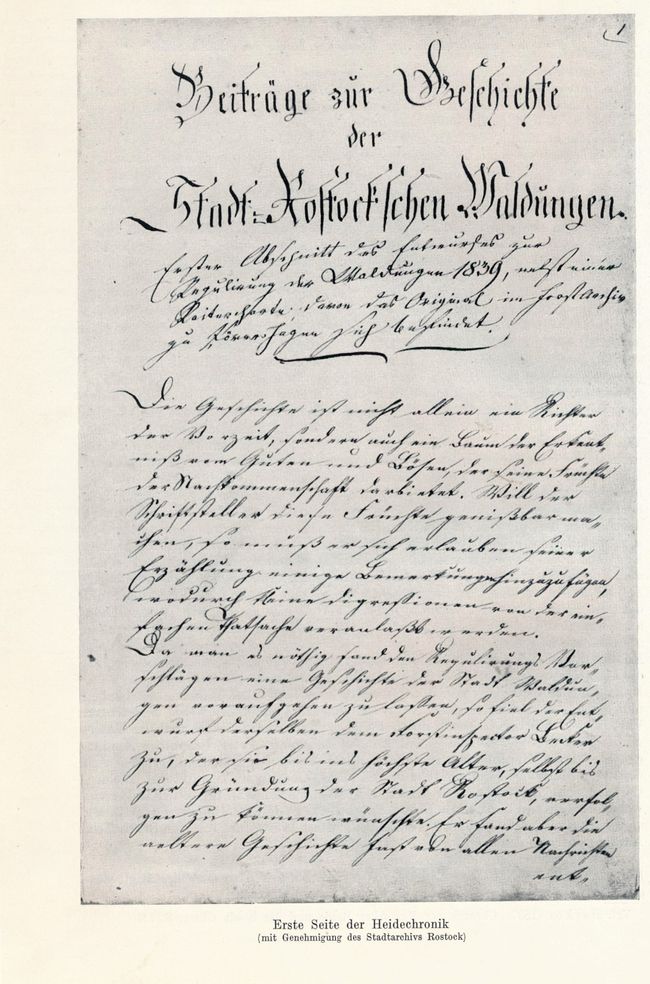 1
Beiträge zur Geschichte
der
Stadt-Rostock'schen Waldungen.
Erster Abschnitt des Entwurfes zur
Regulirung der Waldungen 1839, nebst einer
Reitercharte, davon das Original im Forst Archiv
zu Rövershagen sich befindet.
Die Geschichte ist nicht allein ein Richter
der Vorzeit, sondern auch ein Baum der Erkent-
niß vom Guten und Bösen, der seine Früchte
der Nachkommenschaft darbietet. Will der
Schriftsteller diese Früchte genißbar ma-
chen, so muß er sich erlauben seiner
Erzählung einige Bemerkungen hinzuzufügen,
wodurch kleine digressionen von der ein-
fachen Thatsache veranlaßt werden.
Da man es nöthig fand den Regulirungs Vor-
schlägen eine Geschichte der Stadt Waldun-
gen voraufgehen zu lassen, so fiel der Ent-
wurf derselben dem Forstinspector Becker
zu, der sie bis ins höchste Alter, selbst bis
zur Gründung der Stadt Rostock, verfol-
gen zu können wünschte. Er fand aber die
aeltere Geschichte fast von allen Nachrichten
ent-
Erste Seite der Heidechronik
(mit Genehmigung des Stadtarchivs Rostock)